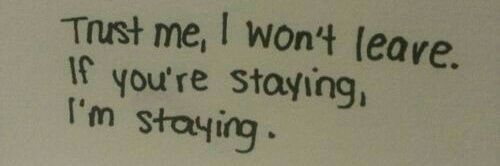 Trust me, I won't leave.
If you're staying,
I'm staying.